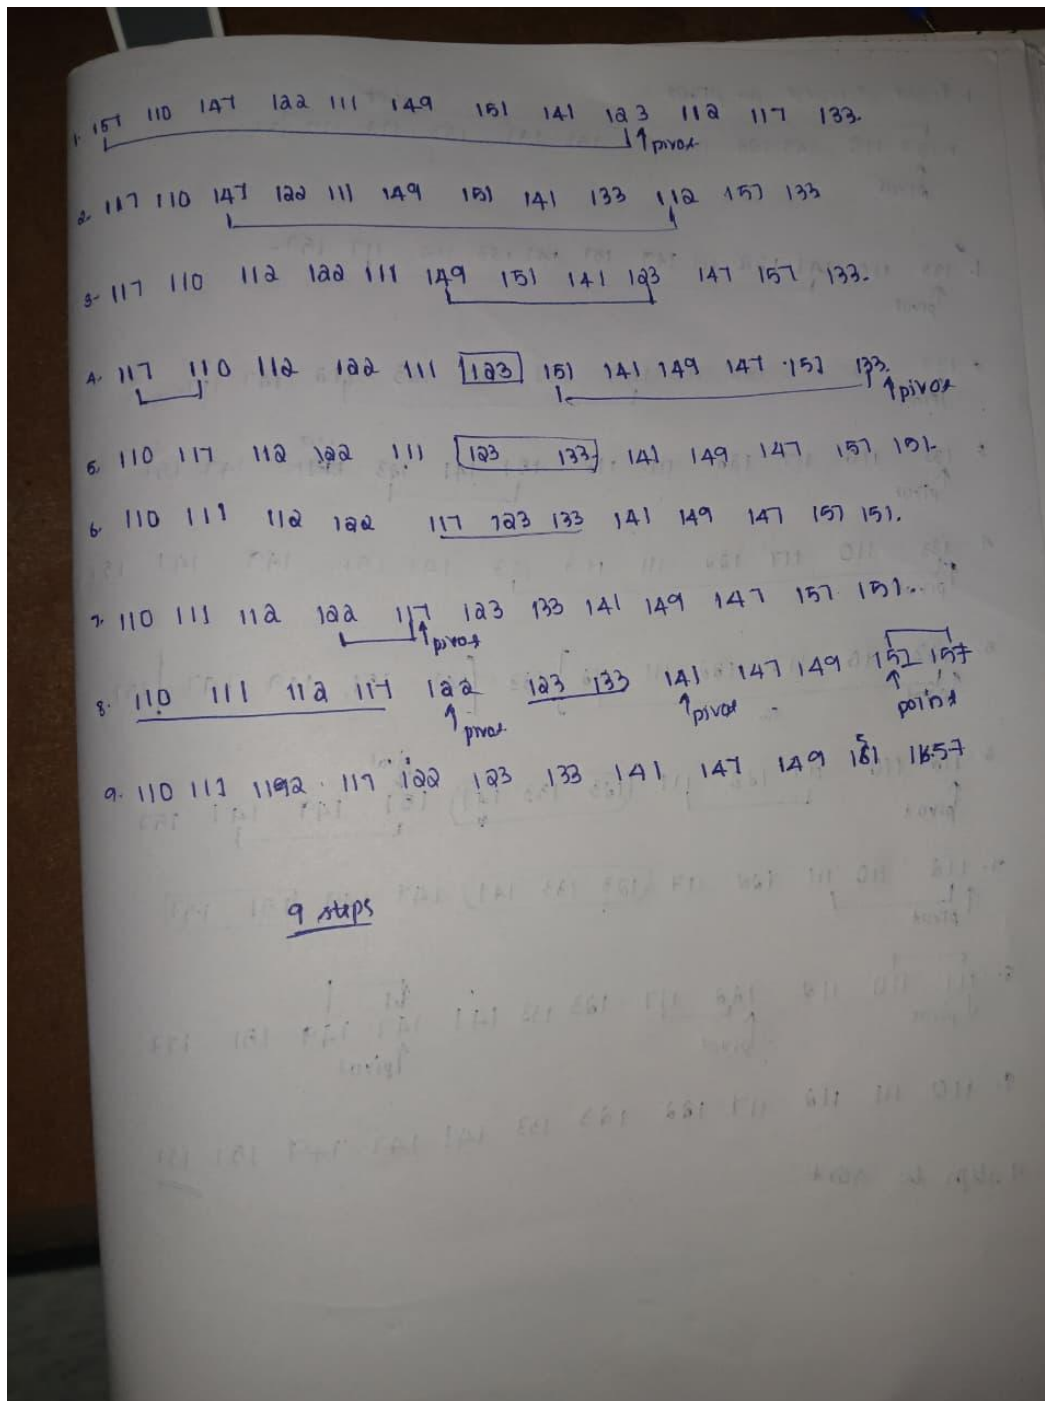 1. 157 110 147 122 111 149 151 141 123 112 117 133.
pivot
2. 117 110 147 122 111 149 151 141 133 112 157 133
3. 117 110 112 122 111 149 151 141 123 147 157 133.
4. 117 110 112 122 111 123 151 141 149 147 157 133.
pivot
5. 110 117 112 122 111 123 133 141 149 147 157 151.
6. 110 111 112 122 117 123 133 141 149 147 157 151.
7. 110 111 112 122 117 123 133 141 149 147 157 151..
pivot
8. 110 111 112 117 122 123 133 141 147 149 151 157
pivot pivot point
9. 110 111 1192 117 122 123 133 141 147 149 151 157
9 steps